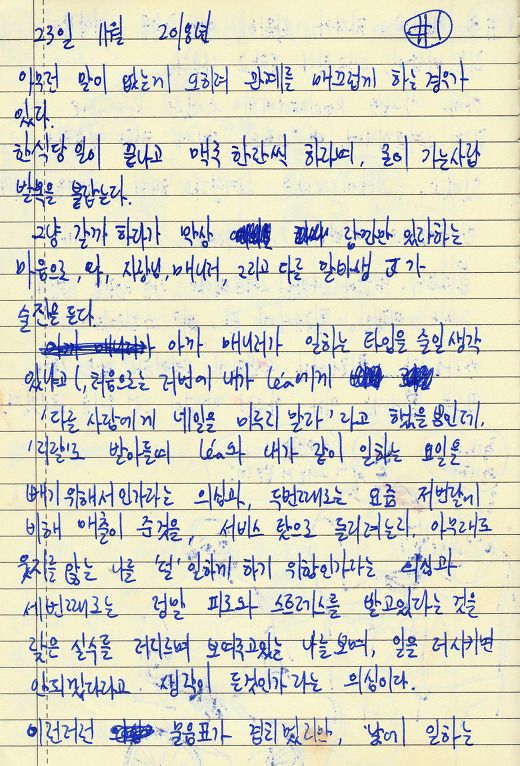 23일 11월 2018년 #1
아무런 말이 없는게 오히려 관계를 매끄럽게 하는 경우가
있다.
한식당 일이 끝나고 맥주 한잔씩 하라며, 집이 가는사람
발목을 붙잡는다.
그냥 갈까 하다가 막상 잠깐만 있자하는
마음으로, 나, 사장님, 매니저, 그리고 다른 알바생 고가
술잔을 든다.
아까 매니저가 일하는 타임을 줄일생각
있냐고 (, 처음으로는 저번에 내가 Léa에게
'다른 사람에게 네일을 미루지 말라'라고 했을뿐인데,
'지랄'로 받아들여 Léa와 내가 같이 일하는 요일을
빼기위해서인가라는 의심과, 두번째로는 요즘 저번달에
비해 매출이 준것을, 서비스 탓으로 돌리려는지, 아무래도
웃지를 않는 나를 '덜' 일하게 하기 위함인가라는 의심과
세번째로는 정말 피로와 스트레스를 받고있다는 것을
잦은 실수를 저지르며 보여주고있는 나를보며, 일을 더시키면
안되겠다라고 생각이 든것인가라는 의심이다.
이런저런 물음표가 걸리겠지만, 낮에 일하는